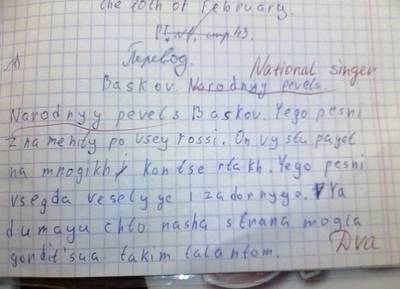 the 10th of February.
стр. 43.
Перевод.
National singer
Baskov Narodnyy pevets
Narodnyy pevets Baskov. Yego pesni
znamenity po vsey rossi. On vystupayet
na mnogikh kontsertakh. Yego pesni
vsegda veselyye i zadornyye. Ya
dumayu chto nasha strana mogla
gordit'sua takim talantom.
Dva